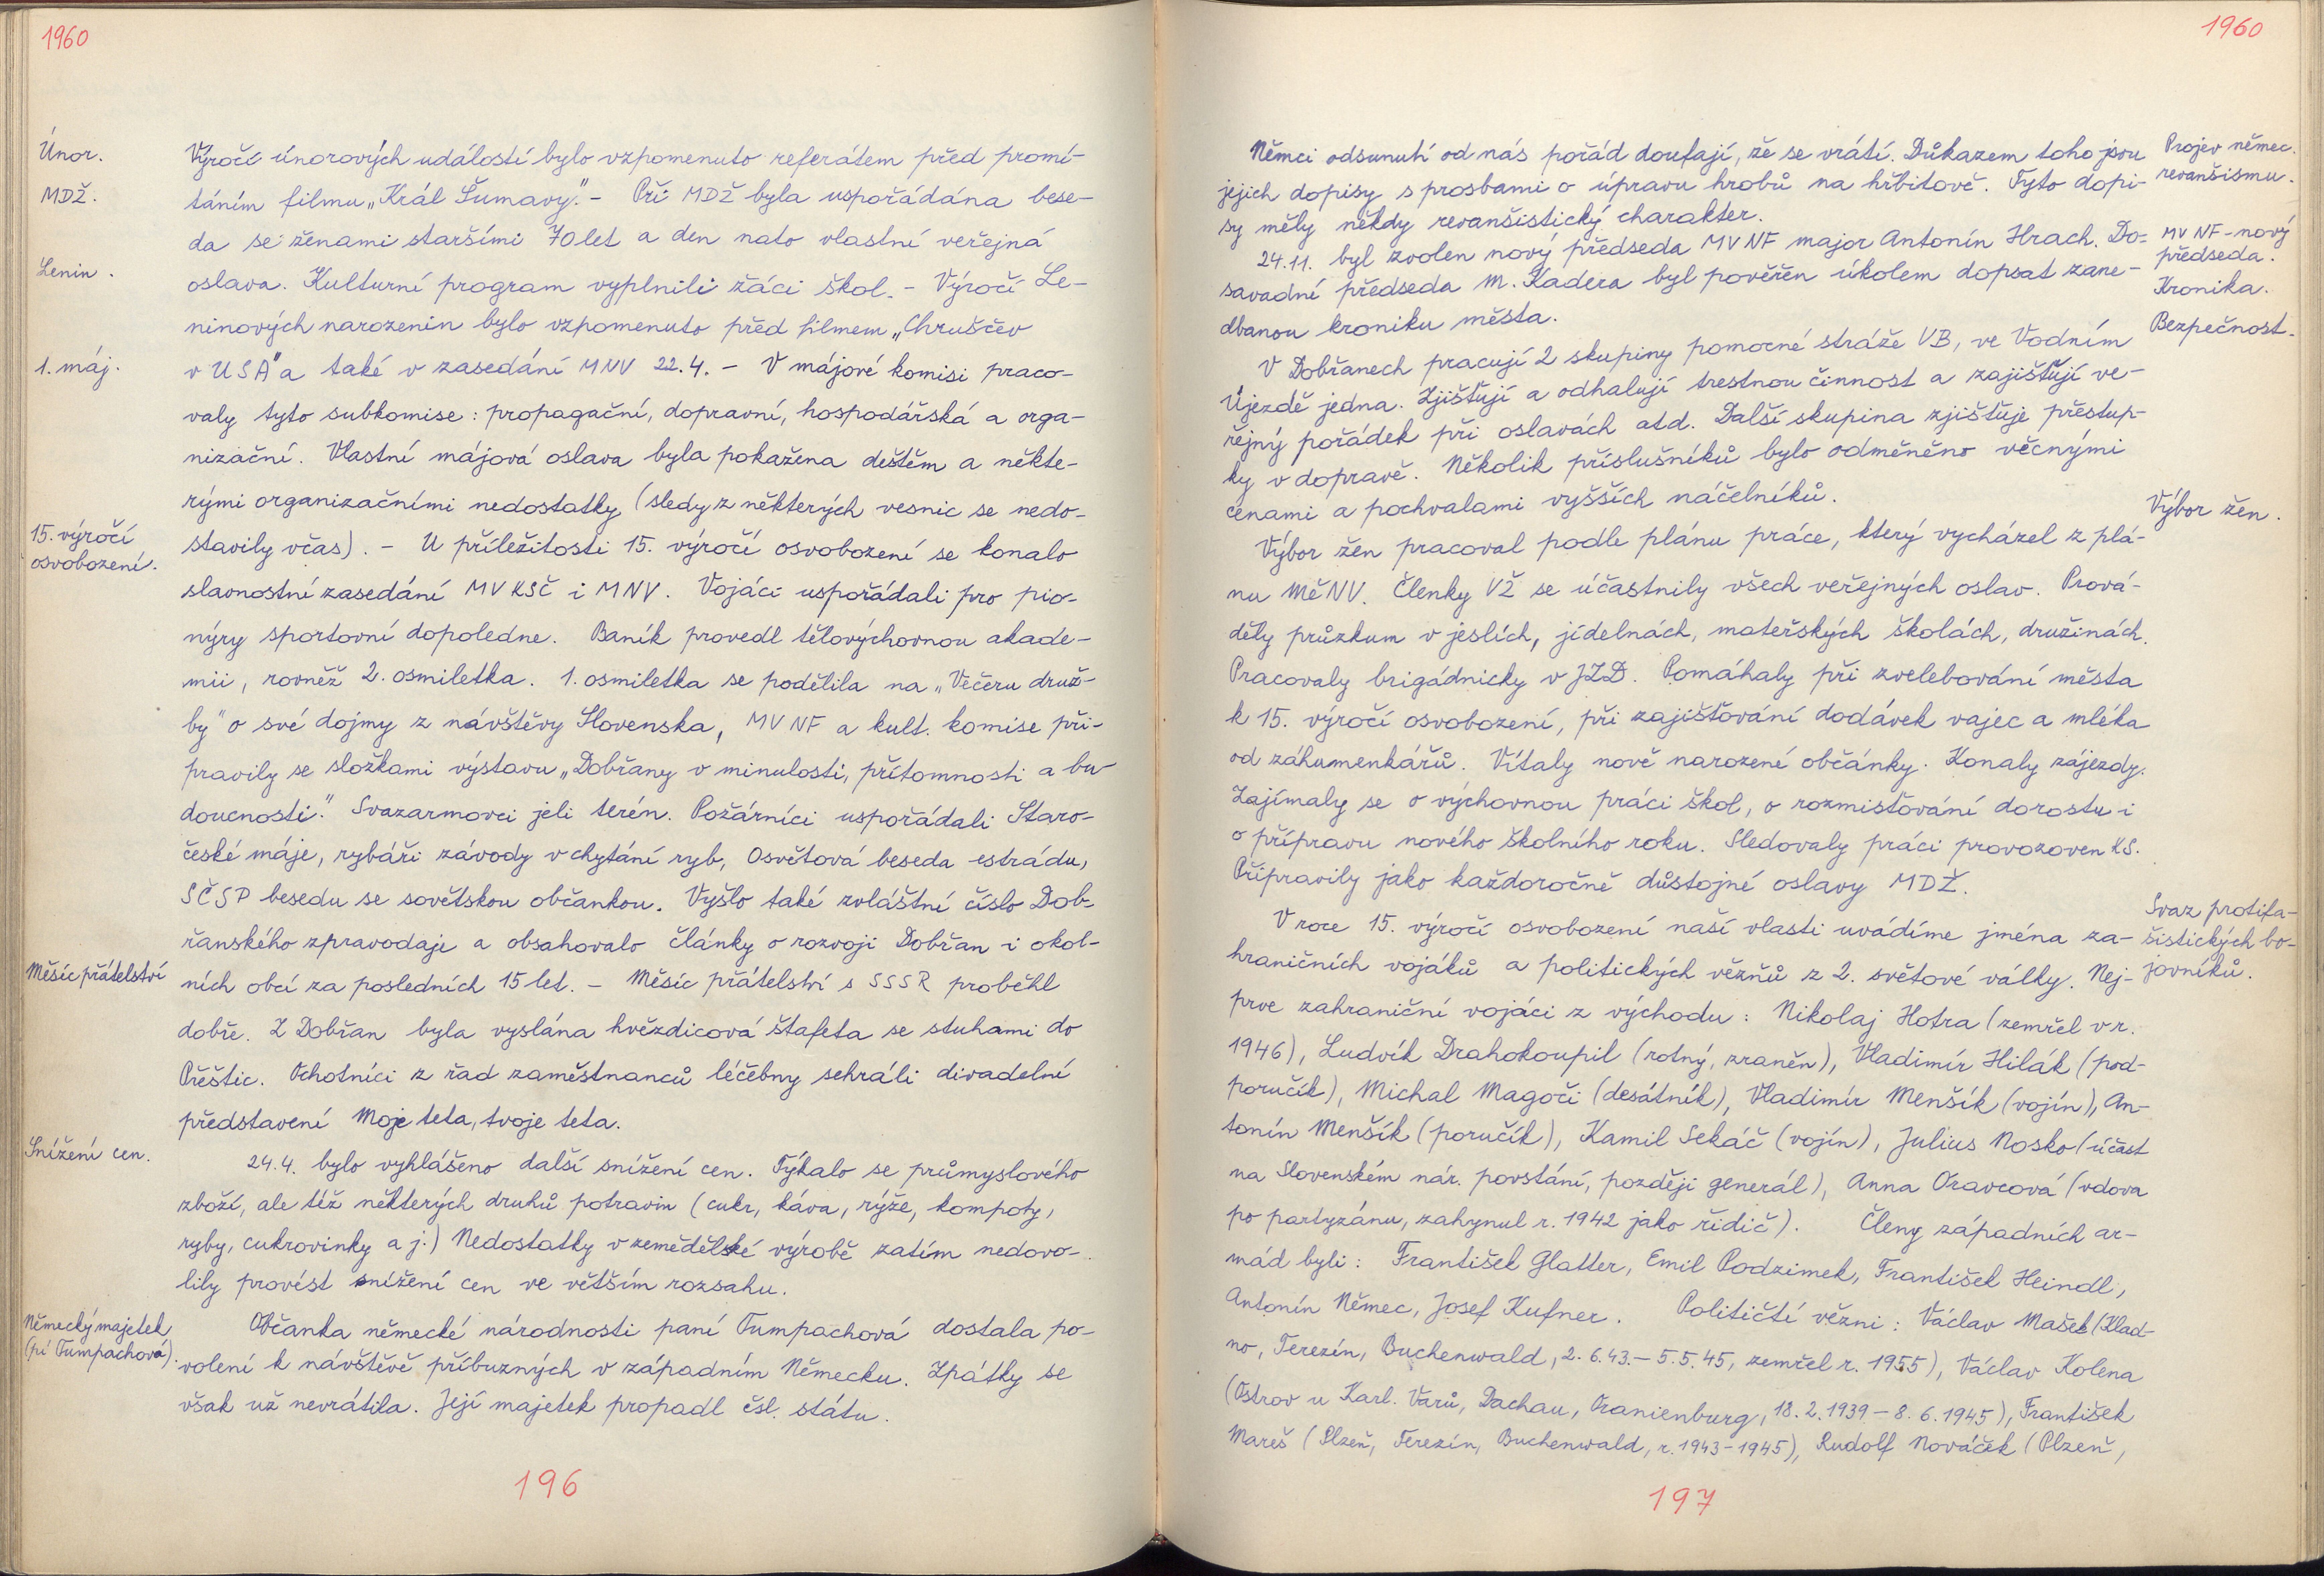 1960
Únor.
Výročí únorových událostí bylo vzpomenuto referátem před promí-
MDŽ.
táním filmu „Král Šumavy." - Při MDŽ byla uspořádána bese-
da se ženami staršími 70 let a den nato vlastní veřejná
Lenin.
oslava. Kulturní program vyplnili žáci škol. - Výročí Le-
ninových narozenin bylo vzpomenuto před filmem „Chruščev
1. máj.
v USA" a také v zasedání MNV 22.4. - V májové komisi praco-
valy tyto subkomise: propagační, dopravní, hospodářská a orga-
nizační. Vlastní májová oslava byla pokažena deštěm a někte-
rými organizačními nedostatky (sledy z některých vesnic se nedo-
15. výročí
osvobození.
stavily včas). - U příležitosti 15. výročí osvobození se konalo
slavnostní zasedání MV KSČ i MNV. Vojáci uspořádali pro pio-
nýry sportovní dopoledne. Baník provedl tělovýchovnou akade-
mii, rovněž 2. osmiletka. 1. osmiletka se podělila na „Večeru druž-
by" o své dojmy z návštěvy Slovenska, MV NF a kult. komise při-
pravily se složkami výstavu „Dobřany v minulosti, přítomnosti a bu-
doucnosti." Svazarmovci jeli terén. Požárníci uspořádali Staro-
české máje, rybáři závody v chytání ryb, Osvětová beseda estrádu,
SČSP besedu se sovětskou občankou. Vyšlo také zvláštní číslo Dob-
řanského zpravodaje a obsahovalo články o rozvoji Dobřan i okol-
Měsíc přátelství
ních obcí za posledních 15 let. - Měsíc přátelství s SSSR proběhl
dobře. Z Dobřan byla vyslána hvězdicová štafeta se stuhami do
Přeštic. Ochotníci z řad zaměstnanců léčebny sehráli divadelní
představení Moje teta, tvoje teta.
Snížení cen.
24.4. bylo vyhlášeno další snížení cen. Týkalo se průmyslového
zboží, ale též některých druhů potravin (cukr, káva, rýže, kompoty,
ryby, cukrovinky a j.) Nedostatky v zemědělské výrobě zatím nedovo-
lily provést snížení cen ve větším rozsahu.
Německý majetek
(pí Tumpachová).
Občanka německé národnosti paní Tumpachová dostala po-
volení k návštěvě příbuzných v západním Německu. Zpátky se
však už nevrátila. Její majetek propadl čsl. státu.
196
1960
Němci odsunutí od nás pořád doufají, že se vrátí. Důkazem toho jsou
Projev němec.
revanšismu.
jejich dopisy s prosbami o úpravu hrobů na hřbitově. Tyto dopi-
sy měly někdy revanšistický charakter.
24.11. byl zvolen nový předseda MV NF major Antonín Hrach. Do-
MV NF - nový
předseda.
savadní předseda M. Kadera byl pověřen úkolem dopsat zane-
Kronika.
dbanou kroniku města.
Bezpečnost.
V Dobřanech pracují 2 skupiny pomocné stráže VB, ve Vodním
Újezdě jedna. Zjišťují a odhalují trestnou činnost a zajišťují ve-
řejný pořádek při oslavách atd. Další skupina zjišťuje přestup-
ky v dopravě. Několik příslušníků bylo odměněno věcnými
cenami a pochvalami vyšších náčelníků.
Výbor žen.
Výbor žen pracoval podle plánu práce, který vycházel z plá-
nu MěNV. Členky VŽ se účastnily všech veřejných oslav. Prová-
děly průzkum v jeslích, jídelnách, mateřských školách, družinách.
Pracovaly brigádnicky v JZD. Pomáhaly při zvelebování města
k 15. výročí osvobození, při zajišťování dodávek vajec a mléka
od záhumenkářů. Vítaly nově narozené občánky. Konaly zájezdy.
Zajímaly se o výchovnou práci škol, o rozmisťování dorostu i
o přípravu nového školního roku. Sledovaly práci provozoven KS.
Připravily jako každoročně důstojné oslavy MDŽ.
V roce 15. výročí osvobození naší vlasti uvádíme jména za-
Svaz protifa-
šistických bo-
jovníků.
hraničních vojáků a politických vězňů z 2. světové války. Nej-
prve zahraniční vojáci z východu: Nikolaj Hotra (zemřel v r.
1946), Ludvík Drahokoupil (rotný, zraněn), Vladimír Hilák (pod-
poručík), Michal Magoči (desátník), Vladimír Menšík (vojín), An-
tonín Menšík (poručík), Kamil Sekáč (vojín), Julius Nosko (účast
na Slovenském nár. povstání, později generál), Anna Oravcová (vdova
po partyzánu, zahynul r. 1942 jako řidič). Členy západních ar-
mád byli: František Glatter, Emil Podzimek, František Heindl,
Antonín Němec, Josef Kufner. Političtí vězni: Václav Mašek (Klad-
no, Terezín, Buchenwald, 2.6.43. - 5.5.45, zemřel r. 1955), Václav Kolena
(Ostrov u Karl. Varů, Dachau, Oranienburg, 18.2.1939 - 8.6.1945), František
Mareš (Plzeň, Terezín, Buchenwald, r. 1943-1945), Rudolf Nováček (Plzeň,
197